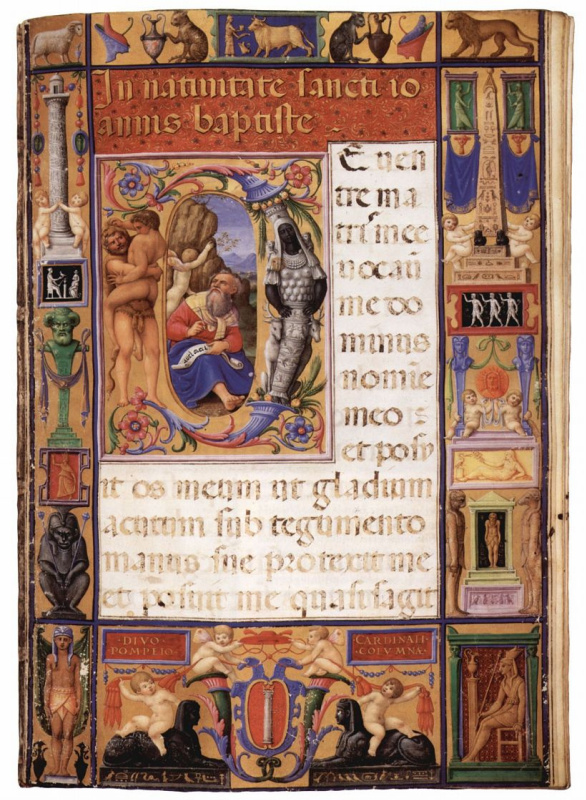 In natiuitate sancti io
annis baptiste
DE uen
tre ma
tris mee
uocaũ
me do
minus
nomĩe
meo :
et posu
it os meum ut gladium
acutum sub tegumento
manus sue protexit me
et posuit me quasi sagit
·DIVO·
POMPEIO·
CARDINALI
·COLVMNA·